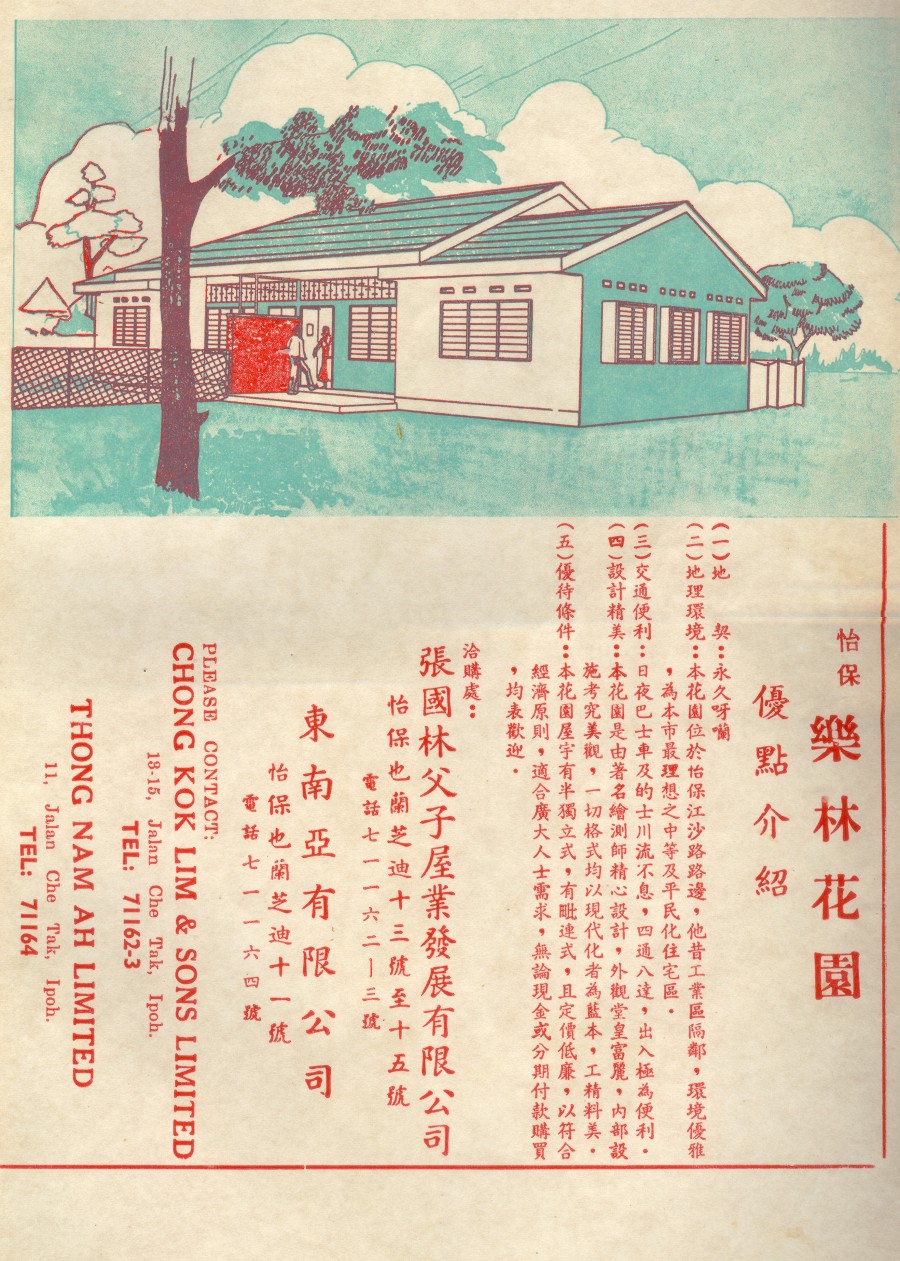 怡保 樂林花園
優點介紹
(一)地　契：永久呀蘭
(二)地理環境：本花園位於怡保江沙路路邊，他昔工業區隔鄰，環境優雅
，為本市最理想之中等及平民化住宅區．
(三)交通便利：日夜巴士車及的士川流不息，四通八達，出入極為便利．
(四)設計精美：本花園是由著名繪測師精心設計，外觀堂皇富麗，內部設
施考究美觀，一切格式均以現代化者為藍本，工精料美．
(五)優待條件：本花園屋宇有半獨立式，有毗連式，且定價低廉，以符合
經濟原則，適合廣大人士需求，無論現金或分期付款購買
，均表歡迎．
洽購處：
張國林父子屋業發展有限公司
怡保也蘭芝迪十三號至十五號
電話七一一六二—三號
東南亞有限公司
怡保也蘭芝迪十一號
電話七一一六四號
PLEASE CONTACT:
CHONG KOK LIM & SONS LIMITED
13-15, Jalan Che Tak, Ipoh.
TEL: 71162-3
THONG NAM AH LIMITED
11, Jalan Che Tak, Ipoh.
TEL: 71164